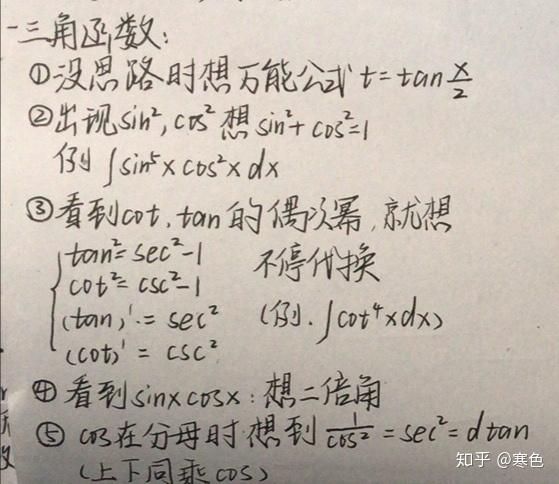 一三角函数:
①没思路时想万能公式 t=tan x/2
②出现sin², cos² 想 sin²+cos²=1
例 ∫sin⁵xcos²xdx
③看到cot, tan 的偶次幂, 就想
tan²=sec²-1
cot²=csc²-1
(tan)'=sec²
(cot)'=csc²
不停代换
(例. ∫cot⁴xdx)
④看到sinxcosx: 想二倍角
⑤ cos在分母时想到 1/cos² = sec² = dtan
(上下同乘cos)
知乎 @寒色